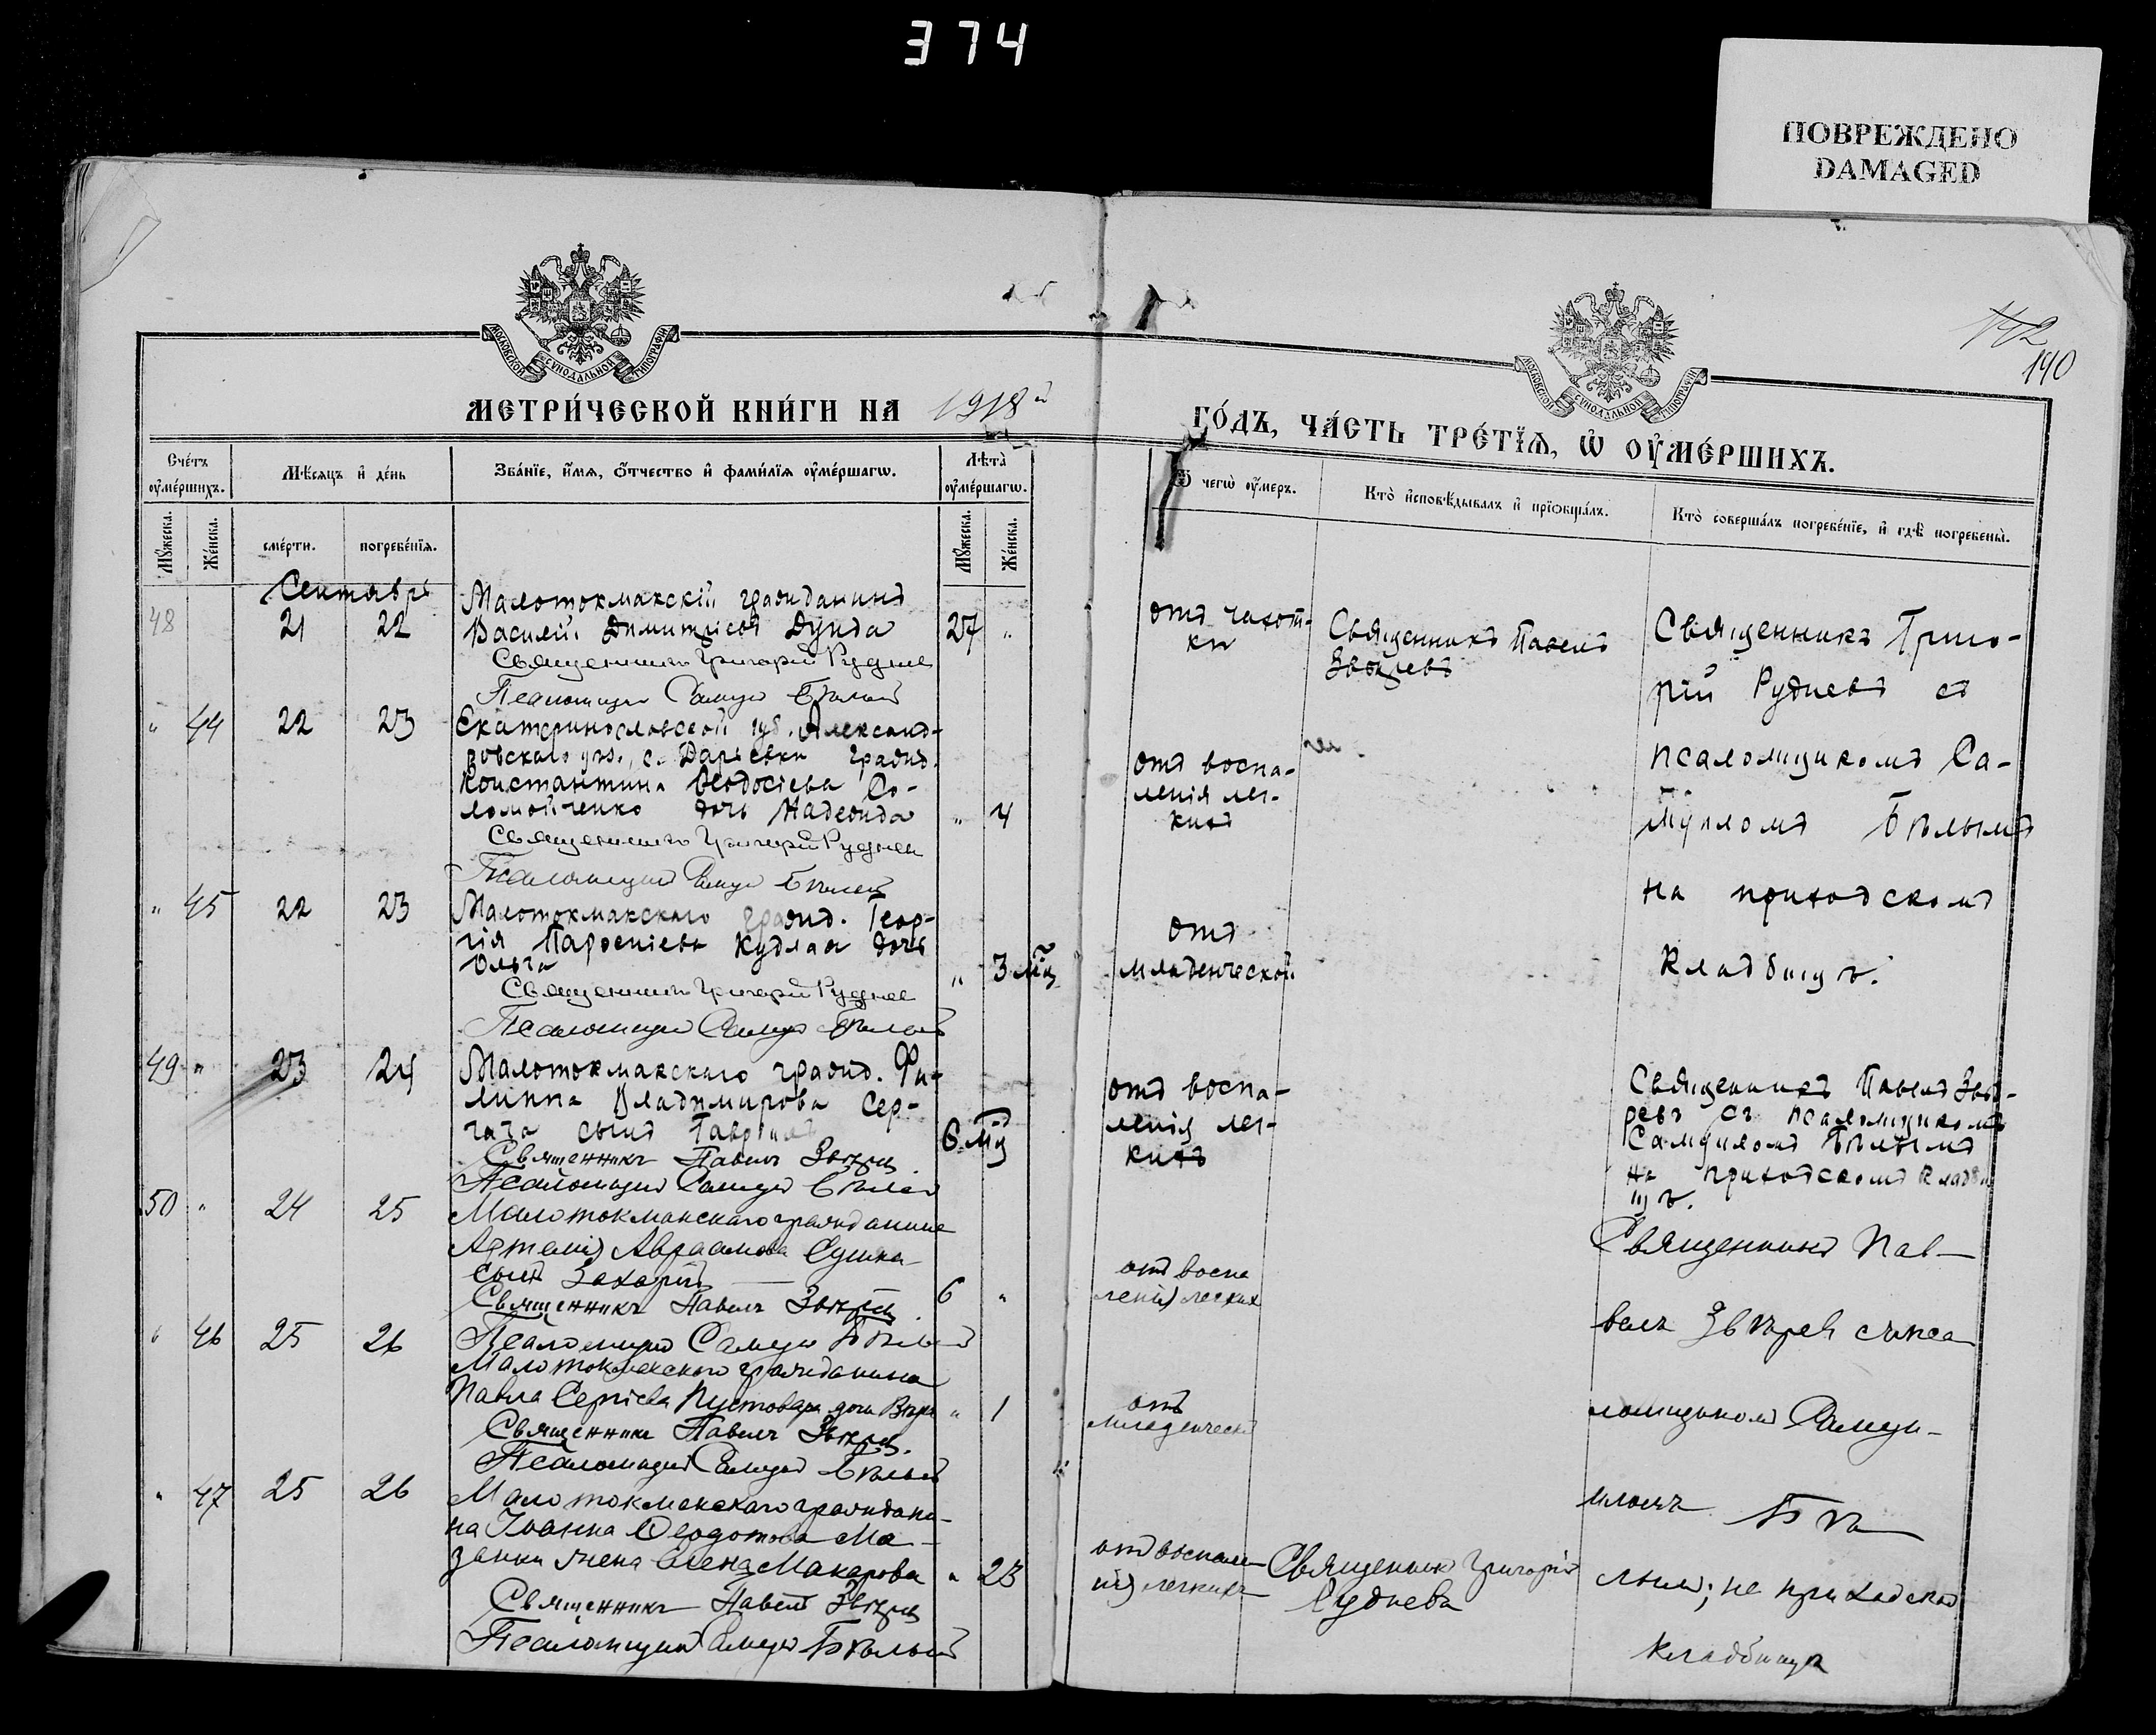 374
ПОВРЕЖДЕНО
DAMAGED
МОСКОВСКОЙ СѴНОДАЛЬНОЙ ТИПОГРАФІИ
МОСКОВСКОЙ СѴНОДАЛЬНОЙ ТИПОГРАФІИ
142
140
МЕТРИ́ЧЕСКОЙ КНИ́ГИ НА 1918й
ГО́ДЪ, ЧА́СТЬ ТРЕ́ТЇѦ, Ѡ ОУ҆МЕ́РШИХЪ.
Сче́тъ оу҆ме́ршихъ.
Мѣ́сяцъ и҆ де́нь
Зва́нїе, и҆́мѧ, ѻ҆́тчество и҆ фами́лїѧ оу҆ме́ршагѡ.
Лѣта̀ оу҆ме́ршагѡ.
Ѿ чегѡ̀ оу҆́меръ.
Кто̀ и҆сповѣ́дывалъ и҆ прїѻбща́лъ.
Кто̀ соверша́лъ погребе́нїе, и҆ гдѣ̀ погребены̀.
Мꙋ́жеска.
Же́нска.
сме́рти.
погребе́нїѧ.
Мꙋ́жеска.
Же́нска.
Сентябрь
48 21 22
Малотокмакскій гражданинъ
Василій Димитріевъ Дунда 27 "
Священникъ Григорій Руднев
Псаломщикъ Самуил Бѣлый
отъ чахот-
ки
Священникъ Павелъ
Звѣревъ
Священникъ Григо-
рій Рудневъ съ
псаломщикомъ Са-
муиломъ Бѣлымъ
на приходскомъ
кладбищѣ.
" 44 22 23
Екатеринославской губ. Александ-
ровскаго уѣз., с. Дарьевки гражд.
Константина Ѳеодосіева Со-
ломойченко дочь Надежда " 4
Священникъ Григорій Руднев
Псаломщикъ Самуил Бѣлый
отъ воспа-
ленія лег-
кихъ
" 45 22 23
Малотокмакскаго гражд. Геор-
гія Парѳеніева Кудлая дочь
Ольга " 3 мц
Священникъ Григорій Руднев
Псаломщикъ Самуил Бѣлый
отъ
младенческой
49 " 23 24
Малотокмакскаго гражд. Фи-
липпа Владимирова Сер-
гача сынъ Гавріилъ 6 мц
Священникъ Павелъ Звѣрев
Псаломщикъ Самуил Бѣлый
отъ воспа-
ленія лег-
кихъ
Священникъ Павелъ Звѣ-
ревъ съ псаломщикомъ
Самуиломъ Бѣлымъ
на приходскомъ кладби
щѣ.
50 " 24 25
Малотокмакскаго гражданина
Артемія Авраамова Сушка
сынъ Захарій 6 "
Священникъ Павелъ Звѣрев
Псаломщикъ Самуил Бѣлый
отъ воспа
ленія легких
Священникъ Пав-
велъ Звѣрев съ пса
ломщиком Самуи-
ломъ Бѣ
лымъ; на приходском
кладбищѣ
" 46 25 26
Малотокмакскаго гражданина
Павла Сергіева Пустовара дочь Вѣра " 1
Священникъ Павелъ Звѣрев.
Псаломщикъ Самуил Бѣлый
отъ
младенческ
" 47 25 26
Малотокмакскаго граждани-
на Іоанна Ѳеодотова Ма-
занки жена Елена Макарова " 23
Священникъ Павелъ Звѣрев
Псаломщикъ Самуил Бѣлый
отъ воспале-
нія легкихъ
Священник Григорій
Рудневъ